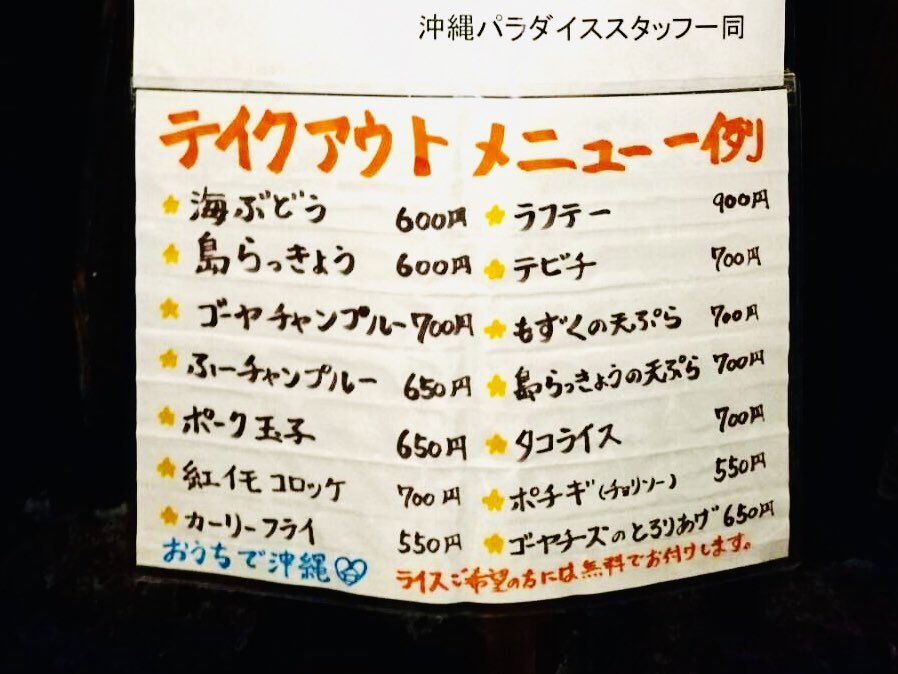 沖縄パラダイススタッフ一同
テイクアウト メニュー 一例
海ぶどう 600円
島らっきょう 600円
ゴーヤチャンプルー 700円
ふーチャンプルー 650円
ポーク玉子 650円
紅イモコロッケ 700円
カーリーフライ 550円
おうちで沖縄
ラフテー 900円
テビチ 700円
もずくの天ぷら 700円
島らっきょうの天ぷら 700円
タコライス 700円
ポチギ(チョリソー) 550円
ゴーヤチーズのとろりあげ 650円
ライスご希望の方には無料でお付けします。